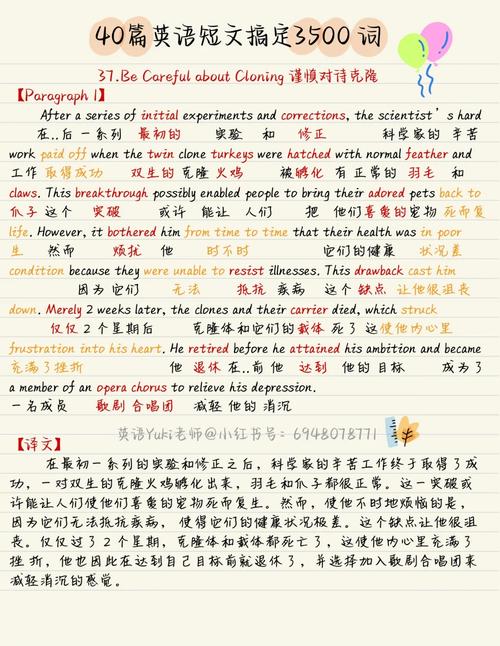 40篇英语短文搞定3500词
37.Be Careful about Cloning 谨慎对待克隆
【Paragraph 1】
After a series of initial experiments and corrections, the scientist's hard
在..后 一系列 最初的 实验 和 修正 科学家的 辛苦
work paid off when the twin clone turkeys were hatched with normal feather and
工作 取得成功 双生的 克隆 火鸡 被孵化 有 正常的 羽毛 和
claws. This breakthrough possibly enabled people to bring their adored pets back to
爪子 这个 突破 或许 能让 人们 把 他们喜爱的宠物 死而复
life. However, it bothered him from time to time that their health was in poor
生 然而 烦扰 他 时不时 它们的健康 状况差
condition because they were unable to resist illnesses. This drawback cast him
因为 它们 无法 抵抗 疾病 这个 缺点 让他很沮丧
down. Merely 2 weeks later, the clones and their carrier died, which struck
仅仅 2 个星期后 克隆体和它们的载体 死了 这使他内心里
frustration into his heart. He retired before he attained his ambition and became
充满了挫折 他 退休 在..前 他 达到 他的 目标 成为了
a member of an opera chorus to relieve his depression.
一名成员 歌剧 合唱团 减轻 他的 消沉
英语Yuki老师@小红书号：6948078771
【译文】
在最初一系列的实验和修正之后，科学家的辛苦工作终于取得了成
功，一对双生的克隆火鸡孵化出来，羽毛和爪子都很正常。这一突破或
许能让人们使他们喜爱的宠物死而复生。然而，使他不时地烦恼的是，
因为它们无法抵抗疾病，使得它们的健康状况极差。这个缺点让他很沮
丧。仅仅过了2个星期，克隆体和载体都死亡了，这使他内心里充满了
挫折，他也因此在达到自己目标前就退休了，并选择加入歌剧合唱团来
减轻消沉的感觉。